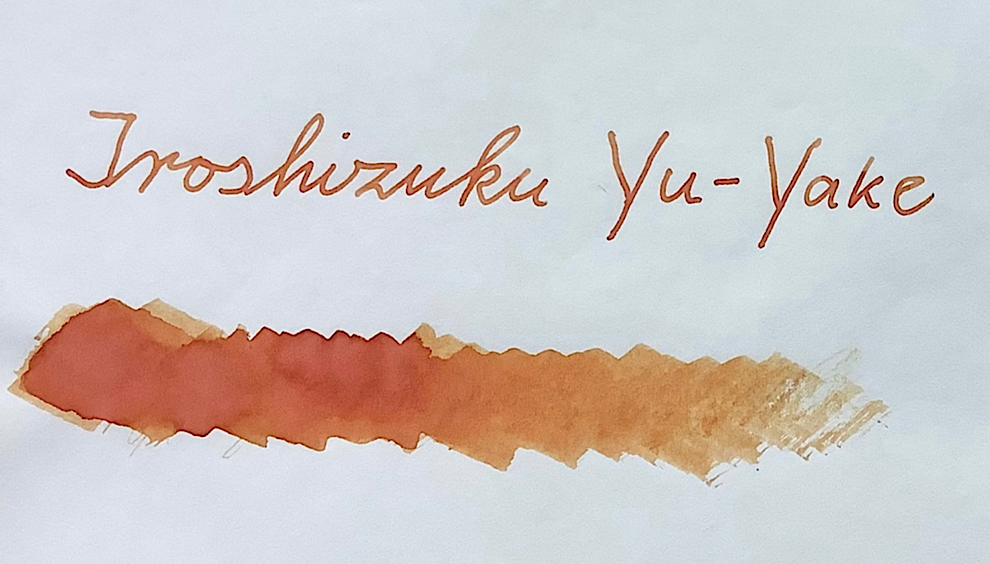 Iroshizuku Yu-Yake